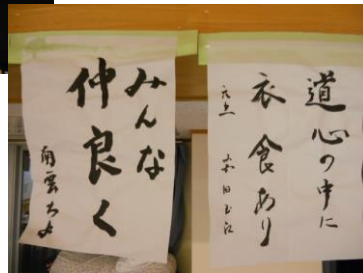 道心の中に
衣食あり
みんな
仲良く